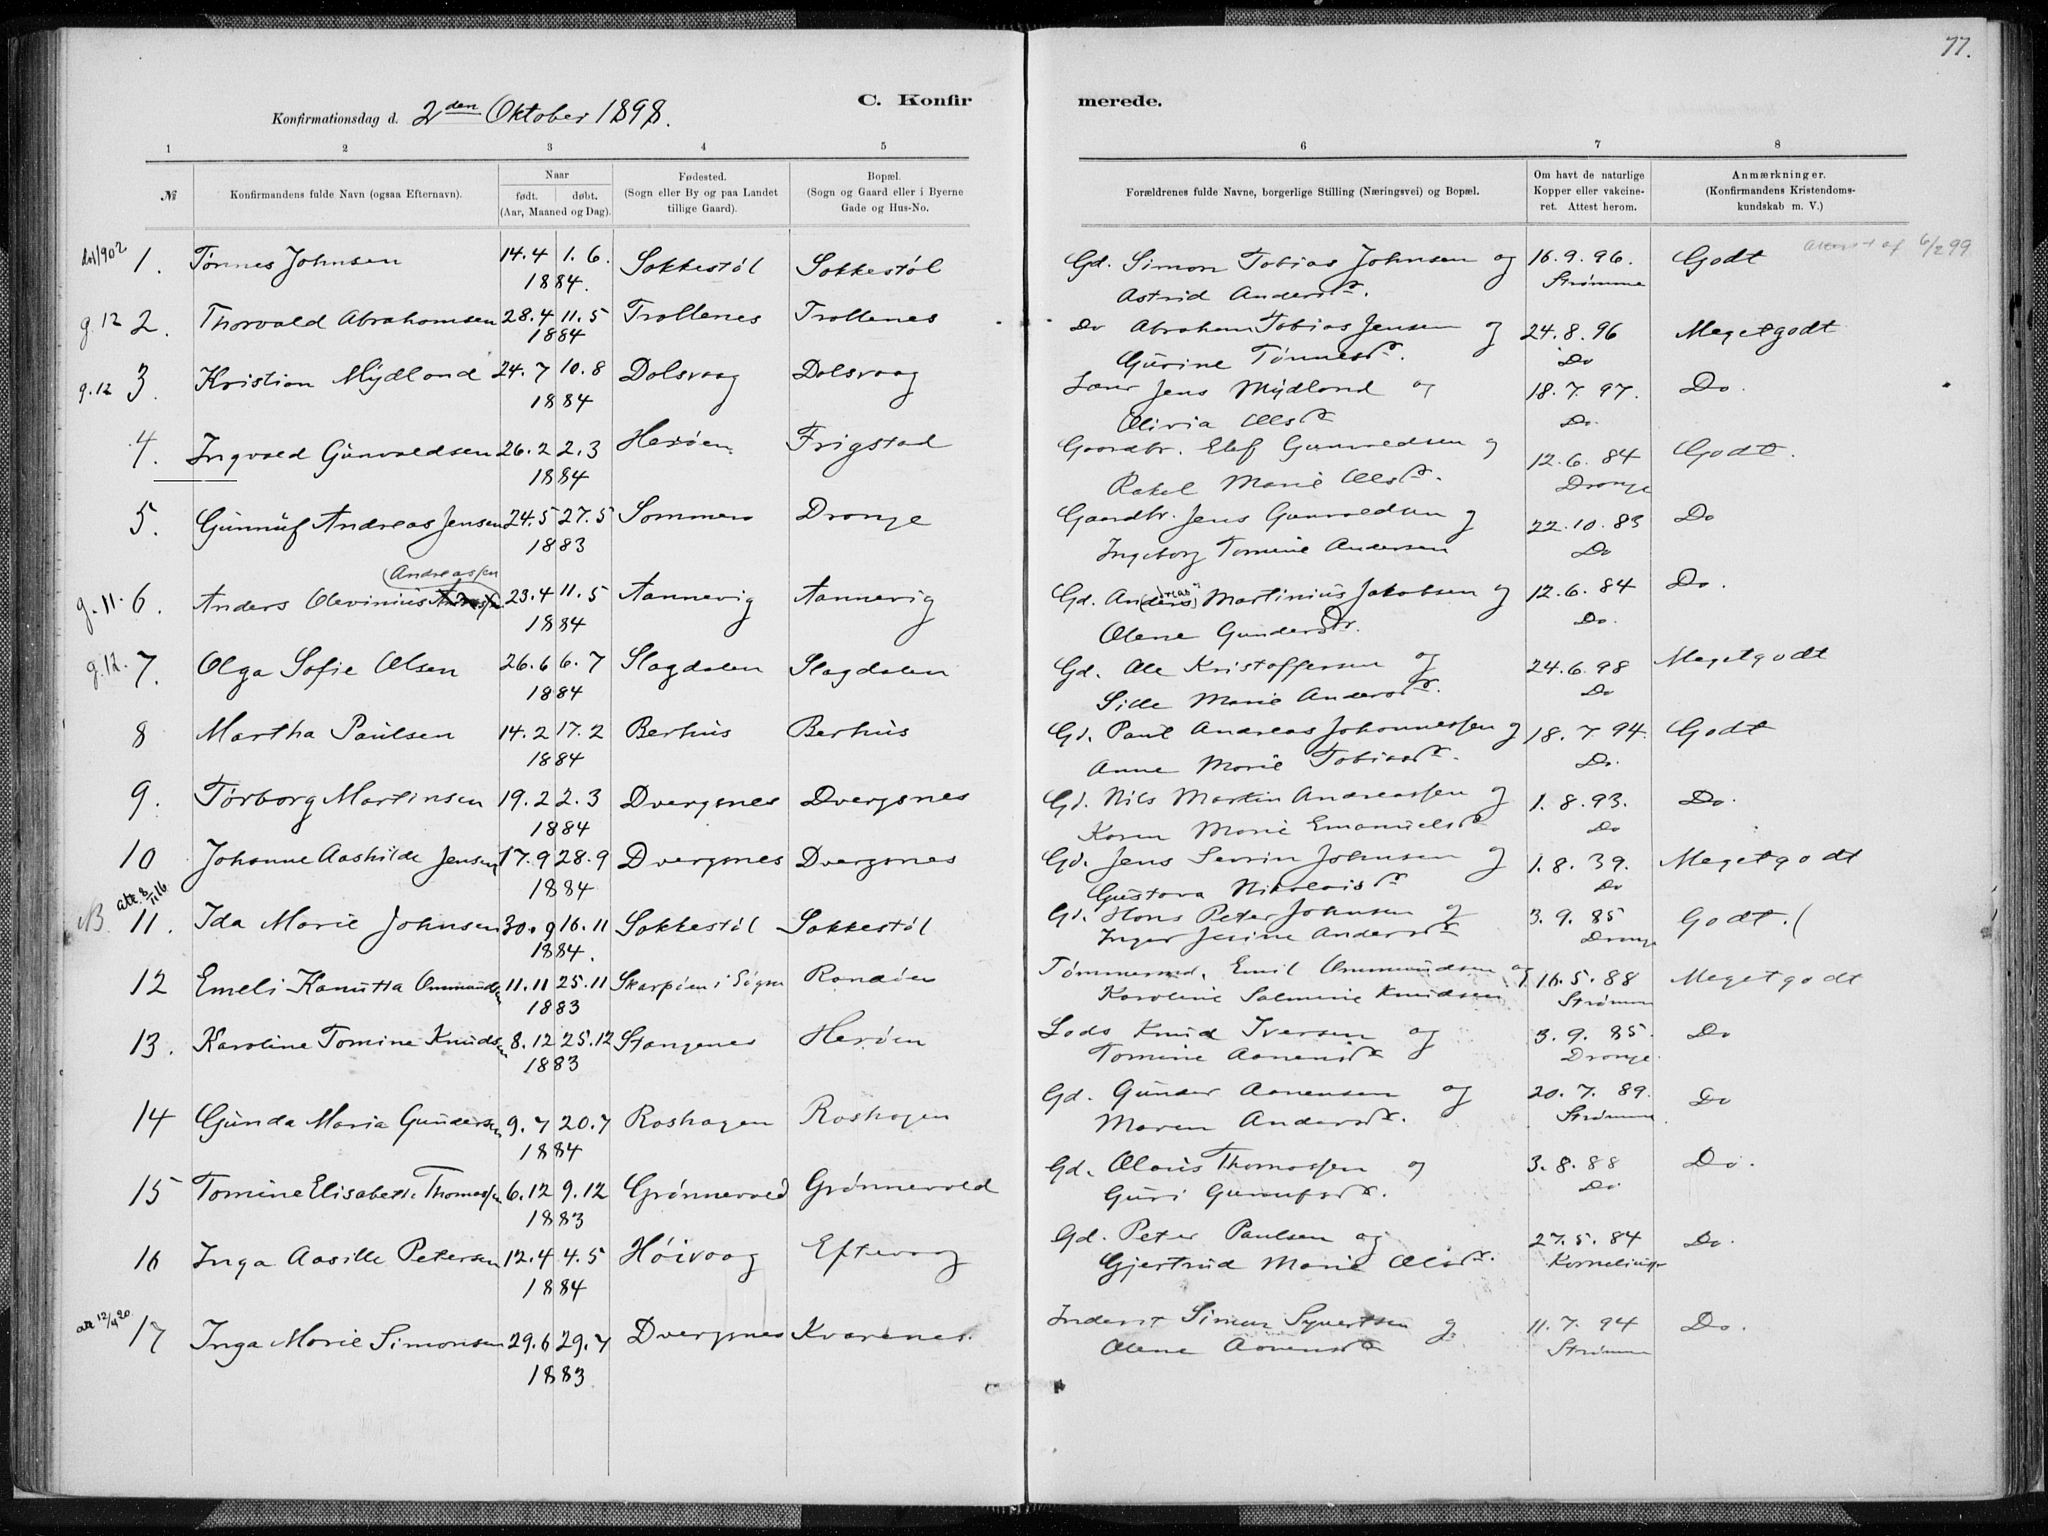 77.
C. Konfirmerede.
Konfirmationsdag d. 2den Oktober 1898.
1 2 3 4 5 6 7 8
№ Konfirmandens fulde Navn (ogsaa Efternavn). Naar født. døbt. (Aar, Maaned og Dag). Fødested. (Sogn eller By og paa Landet tillige Gaard). Bopæl. (Sogn og Gaard eller i Byerne Gade og Hus-No. Forældrenes fulde Navne, borgerlige Stilling (Næringsvei) og Bopæl. Om havt de naturlige Kopper eller vakcineret. Attest herom. Anmærkninger. (Konfirmandens Kristendomskundskab m. V.)
1. Tønnes Johnsen 14.4 1.6. 1884. Sokkestøl Sokkestøl Gd. Simon Tobias Johnsen og 16.9.96. Godt 6/2 99
Astrid Andersdr. Strømme
g.12 2. Thorvald Abrahamsen 28.4 11.5 1884 Trollenes Trollenes Do Abraham Tobias Jensen og 24.8.96 Megetgodt
Gurine Tønnesdr. Do
g.12 3. Kristian Mydland 24.7 10.8 1884 Dolsvaag Dolsvaag Lærer Jens Mydland og 18.7.97. Do.
Olivia Olsdr Do.
4. Ingvald Gunvaldsen 26.2 2.3 1884 Herøen Frigstad Gaardbr. Elef Gunvaldsen og 12.6.84 Godt.
Rakel Marie Olsdr. Drange
5. Gunnuf Andreas Jensen 24.5 27.5 1883 Sommero Drange Gaardbr. Jens Gunvaldsen og 22.10.83 Do
Ingeborg Tomine Andersen Do
Andreassen
g.11. 6. Anders Olevinius 23.4 11.5 1884 Aannevig Aannevig Gd. Anders Martinius Jakobsen og 12.6.84 Do.
Olene Gundersdr. Do.
g.12. 7. Olga Sofie Olsen 26.6 6.7 1884 Slagdalen Slagdalen Gd. Ole Kristoffersen og 24.6.98 Megetgodt
Sille Marie Andersdr. Do
8 Martha Paulsen 14.2 17.2 1884 Berhus Berhus Gd. Paul Andreas Johannessen og 18.7.94. Godt
Anne Marie Tobiasdr. Do.
9. Torborg Martinsen 19.2 2.3 1884 Dvergsnes Dvergsnes Gd. Nils Martin Andreassen og 1.8.93. Do.
Karen Marie Emanuelsdr Do
10 Johanne Aashilde Jensen 17.9 28.9 1884 Dvergsnes Dvergsnes Gd. Jens Severin Johnsen og 1.8.39. Megetgodt
Gustava Nikolaisdr Do
NB. att. 8/11 16
11. Ida Marie Johnsen 30.9 16.11 1884. Sokkestøl Sokkestøl Gd. Hans Peter Johnsen og 3.9.85 Godt.
Inger Jesine Andersdr Drange
12 Emeli Kanutta Ommundsen 11.11 25.11 1883 Skarpøen i Søgne Randøen Tømmermd. Emil Ommundsen og 16.5.88 Megetgodt
Karoline Salmine Knudsen Strømme
13. Karoline Tomine Knudsen 8.12 25.12 1883 Stangenes Herøen Lods Knud Iversen og 3.9.85. Do
Tomine Aanensdr Drange.
14 Gunda Maria Gundersen 9.7 20.7 1884 Roshagen Roshagen Gd. Gunder Aanensen og 20.7.89. Do
Maren Andersdr. Strømme
15 Tomine Elisabeth Thomassen 6.12 9.12 1883 Grønnevold Grønnevold Gd. Olaus Thomassen og 3.8.88 Do.
Guri Gunnufsdr. Do
16 Inga Aasille Petersen 12.4 4.5 1884 Høivaag Eftevaag Gd. Peter Paulsen og 27.5.84 Do.
Gjertrud Marie Olsdr.
att 12/4 20
17 Inga Marie Simonsen 29.6 29.7 1883 Dvergsnes Kvarenes. Inderst Simon Syvertsen og 11.7.94 Do.
Olene Aanensdr Strømme